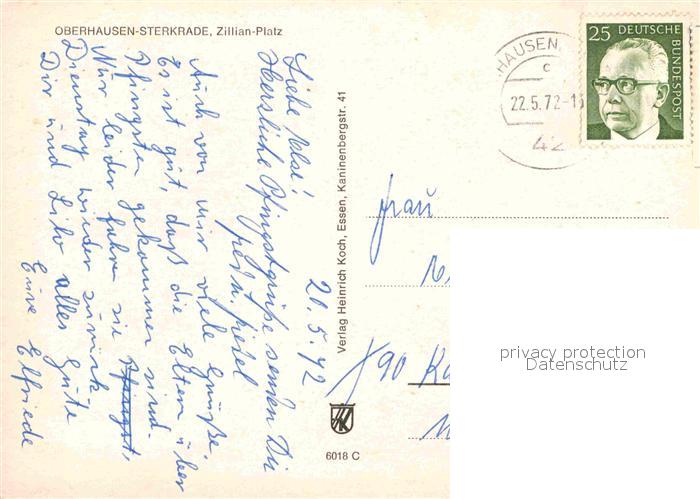 OBERHAUSEN-STERKRADE, Zillian-Platz
20.5.72
Liebe Ilse!
Herzliche Pfingstgrüße senden Dir
Auch von mir viele Grüße.
Es ist gut, daß die Eltern über
Pfingsten gekommen sind.
Nur leider fahren sie Pfingst,
Dienstag wieder zurück.
Dir und Lilo alles Gute
Eure Elfriede
Verlag Heinrich Koch, Essen, Kaninenbergstr. 41
6018 C
HAUSEN
c
22.5.72-1
42
25 DEUTSCHE
BUNDESPOST
Frau
privacy protection
Datenschutz